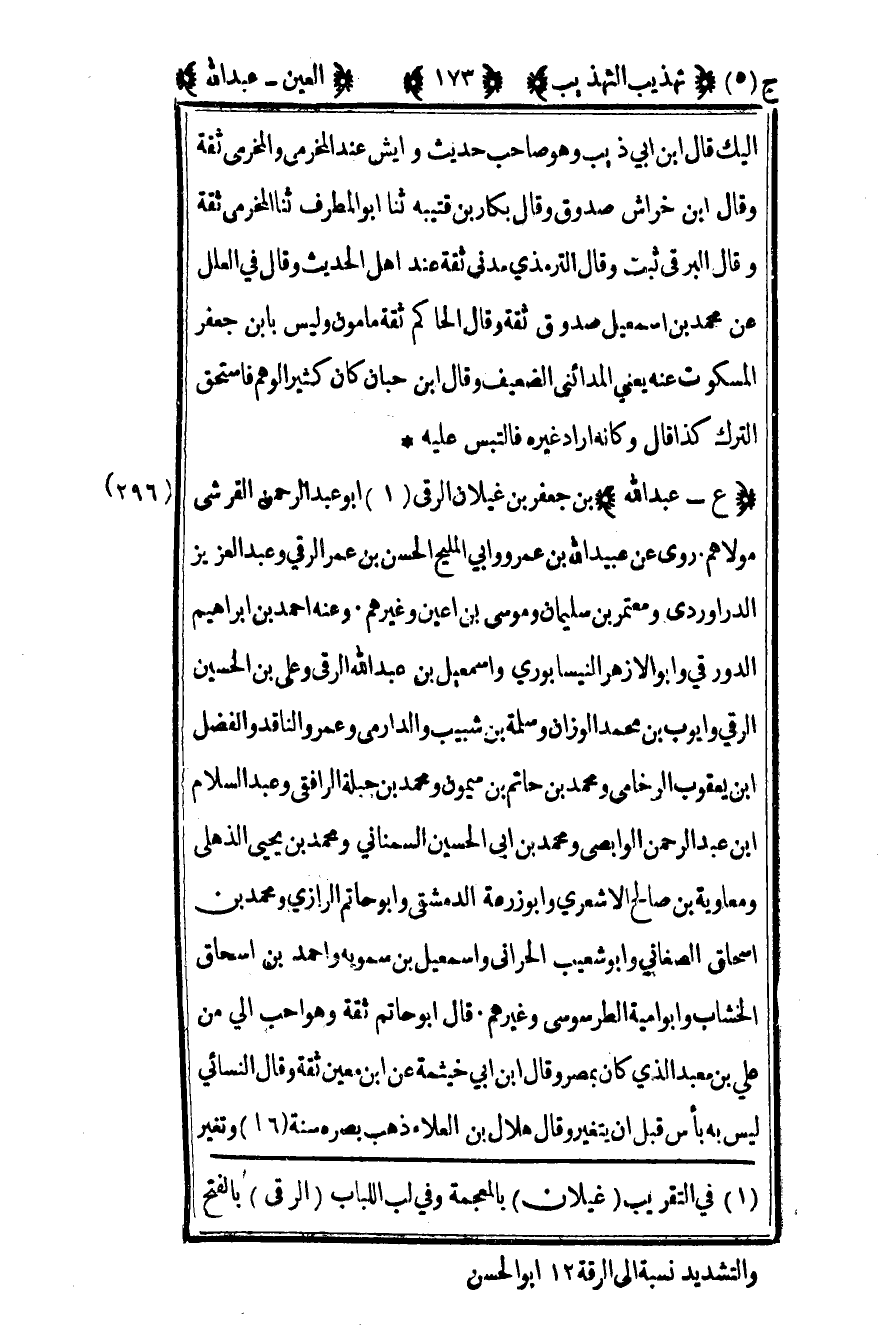 ج (٥) ﴿ تهذيب التهذيب ﴾ ﴿ ١٧٣ ﴾ ﴿ العين ـ عبدالله ﴾
اليك قال ابن ابي ذيب وهو صاحب حديث و ايش عند المخرمى والمخرمى ثقة
وقال ابن خراش صدوق وقال بكار بن قتيبه ثنا ابوالمطرف ثنا المخرمى ثقة
و قال البرقى ثبت وقال الترمذي مدني ثقة عند اهل الحديث وقال في العلل
عن محمد بن اسمعيل صدوق ثقة وقال الحاكم ثقة مامون وليس بابن جعفر
المسكوت عنه يعني المدائنى الضعيف وقال ابن حبان كان كثير الوهم فاستحق
الترك كذا قال وكانه اراد غيره فالتبس عليه *
﴿ ع ـ عبدالله ﴾ بن جعفر بن غيلان الرقى (١) ابو عبد الرحمن القرشى (٢٩٦)
مولاهم. روى عن عبيدالله بن عمرو وابي المليح الحسن بن عمر الرقي وعبد العزيز
الدراوردى ومعتمر بن سليمان وموسى بن اعين وغيرهم. وعنه احمد بن ابراهيم
الدورقي وابو الازهر النيسابوري واسمعيل بن عبدالله الرقى وعلي بن الحسين
الرقي وايوب بن محمد الوزان وسلمة بن شبيب والدارمى وعمرو الناقد والفضل
ابن يعقوب الرخامى ومحمد بن حاتم بن ميمون ومحمد بن جبلة الرافقى وعبد السلام
ابن عبد الرحمن الوابصى ومحمد بن ابى الحسين السمناني ومحمد بن يحيى الذهلى
ومعاوية بن صالح الاشعري وابو زرعة الدمشقى وابو حاتم الرازي ومحمد بن
اسحاق الصغاني وابو شعيب الحرانى واسمعيل بن سمويه واحمد بن اسحاق
الخشاب وابوامية الطرسوسى وغيرهم. قال ابو حاتم ثقة وهو احب الي من
علي بن معبد الذي كان بمصر وقال ابن ابي خيثمة عن ابن معين ثقة وقال النسائي
ليس به بأس قبل ان يتغير وقال هلال بن العلاء ذهب بصره سنة (١٦) وتغير
(١) في التقريب (غيلان) بالمعجمة وفي لب اللباب (الرقى) بالفتح
والتشديد نسبة الى الرقة ١٢ ابو الحسن